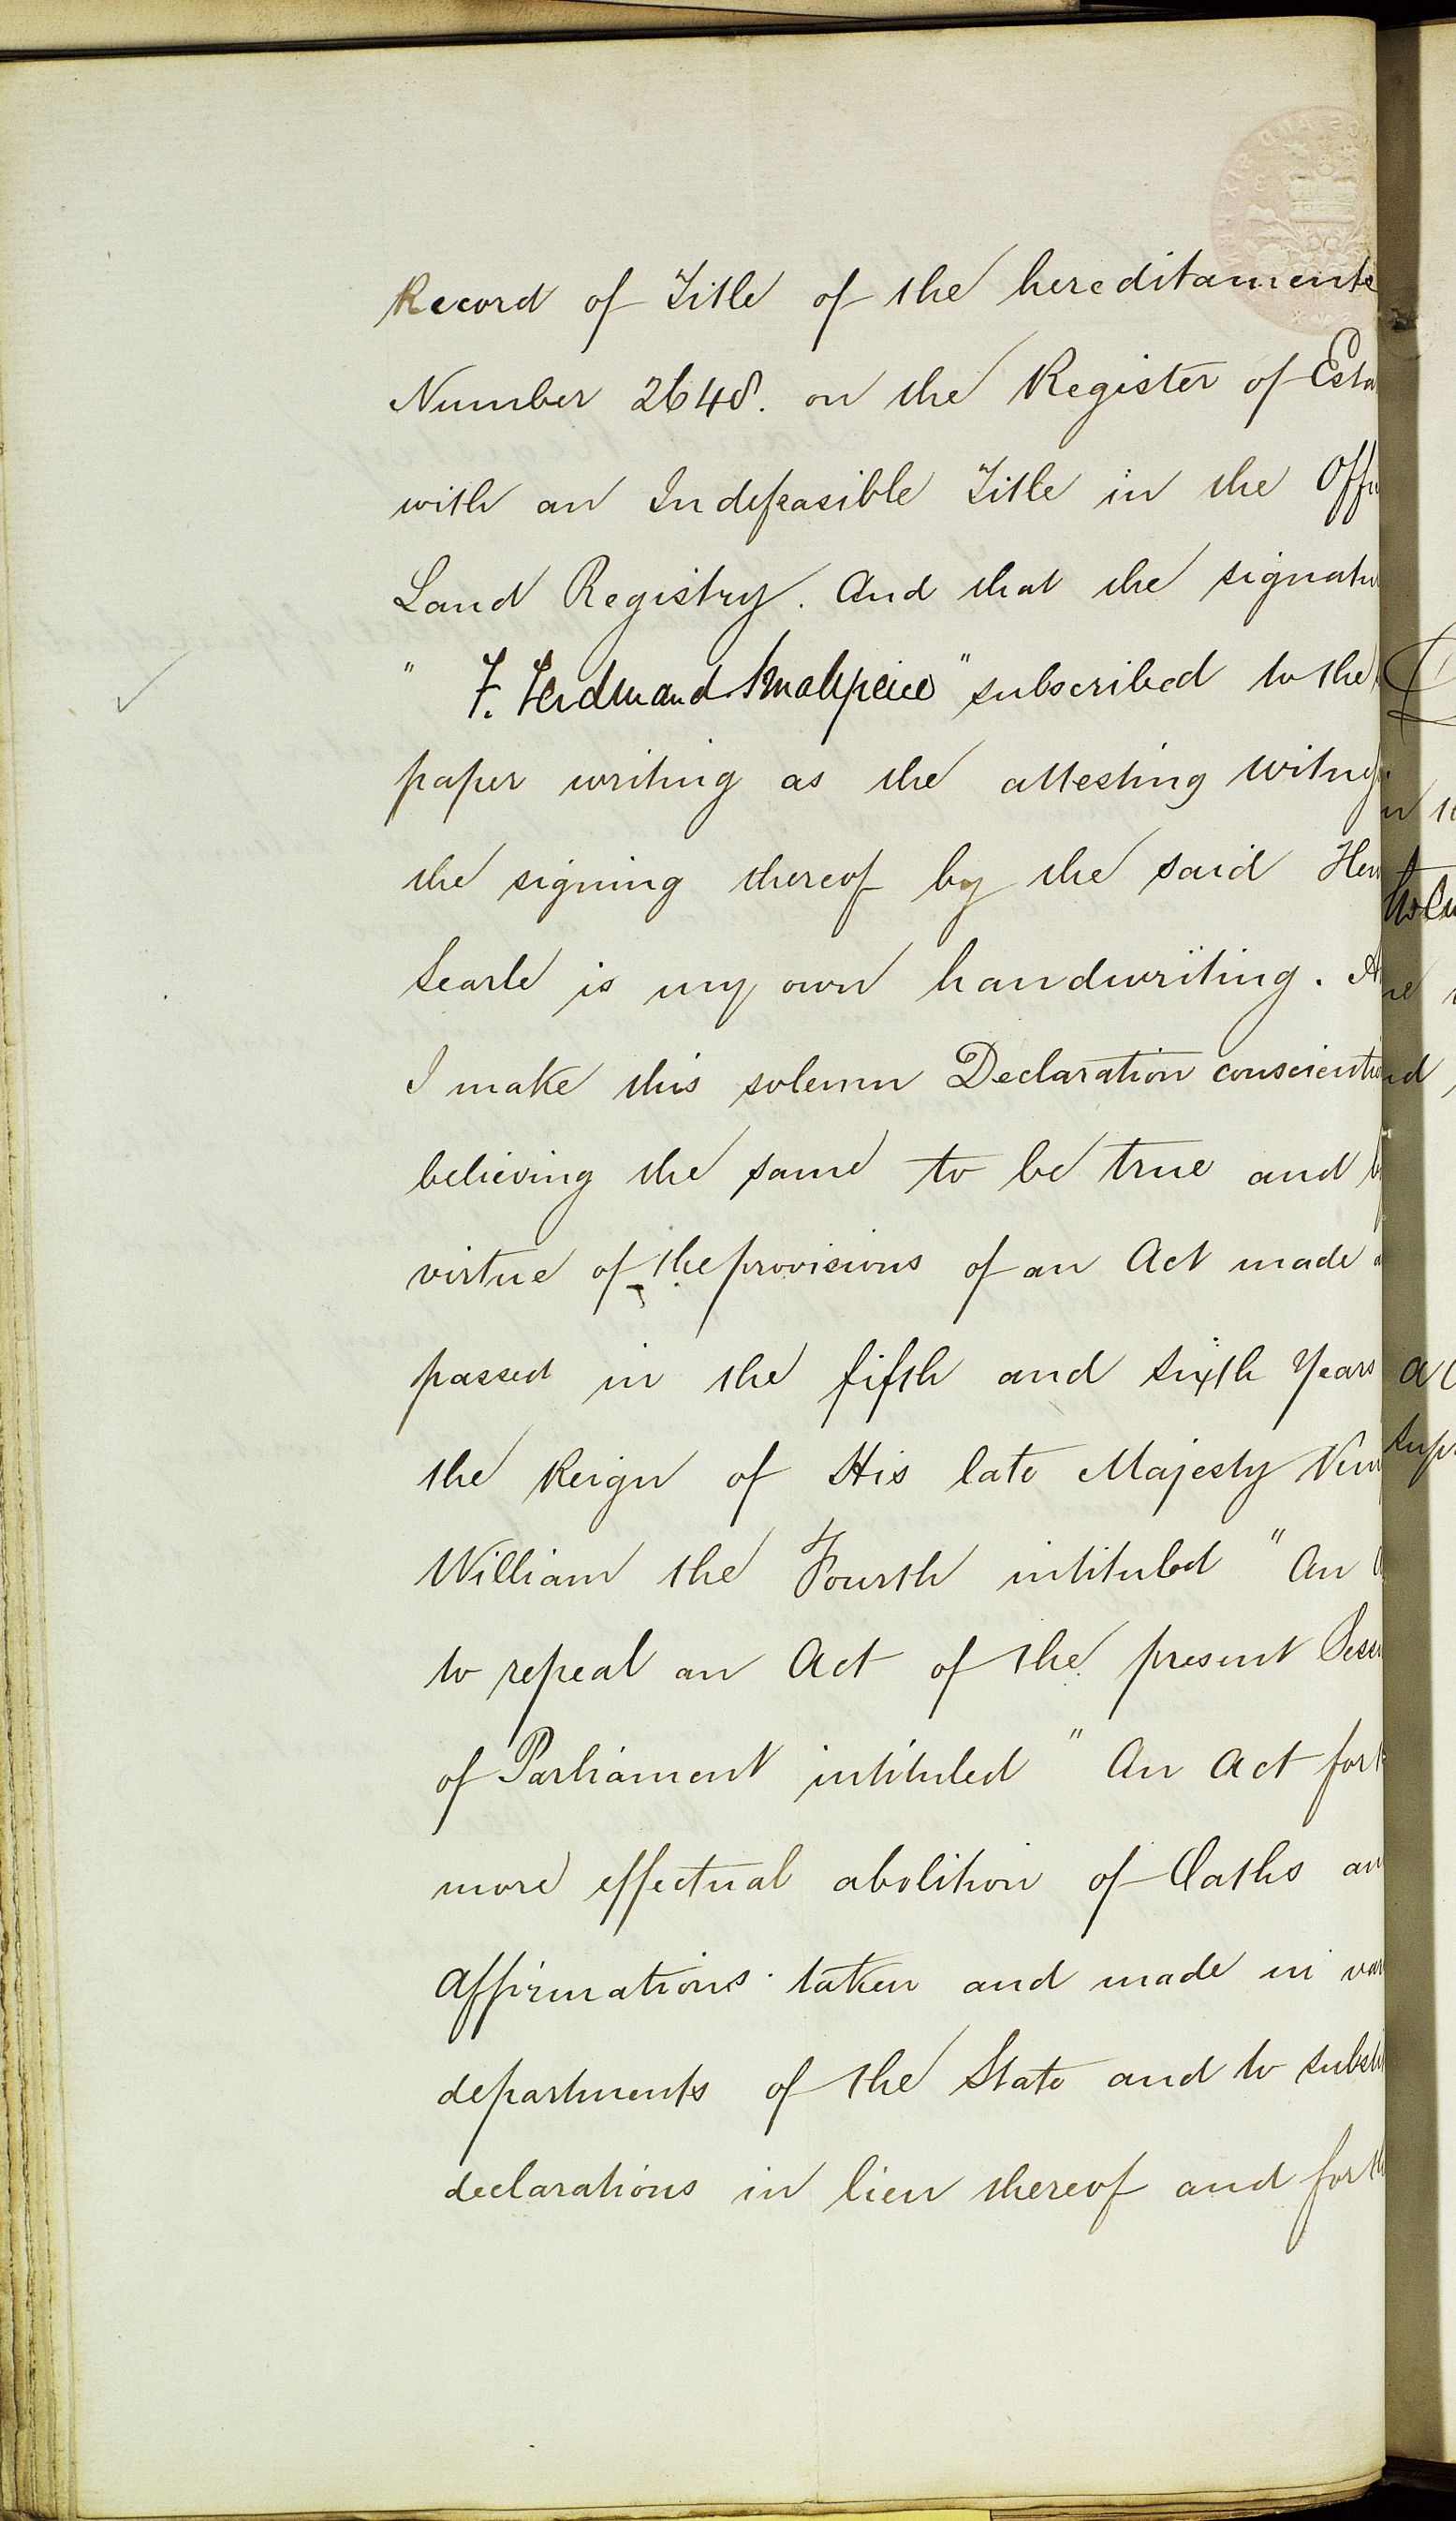 Record of Title of the hereditaments
Number 2648. on the Register of Esta
with an Indefeasible Title in the Offi
Land Registry. And that the signatu
" F. Ferdinand Smallpeice " subscribed to the
paper writing as the attesting witne
the signing thereof by the said Hen
Searle is my own handwriting. A
I make this solemn Declaration conscientio
believing the same to be true and b
virtue of the provisions of an Act made a
passed in the fifth and sixth Years
the Reign of His late Majesty
William the Fourth intituled " An A
to repeal an Act of the present Sess
of Parliament intituled " An Act for t
more effectual abolition of Oaths an
Affirmations taken and made in var
departments of the State and to substi
declarations in lieu thereof and for th